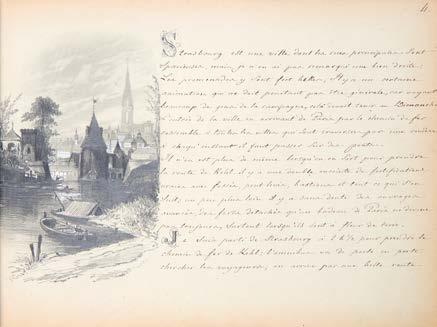 4.
Strasbourg est une ville dont les rues principales sont
spacieuses, mais je n'en ai pas remarqué une bien droite.
Les promenades y sont fort belles, il y a un certaine
animation qui ne doit pourtant pas être générale, car voyant
beaucoup de gens de la campagne, cela devait tenir au Dimanche
l'entrée de la ville en arrivant de Paris par le chemin de fer
ressemble à toutes les villes qui sont traversées par une rivière
à chaque instant il faut passer sur des ponts.
Il n'en est plus de même lorsqu'on en sort pour prendre
la route de Kehl il y a une double enceinte de fortifications
avec fossés, pont levis, bastions et tout ce qui s'en
suit, un peu plus loin il y a sans doute des ouvrages
avancés, des forts détachés qu'un badaud de Paris
toujours, surtout lorsqu'ils sont à fleur de terre.
Je suis parti de Strasbourg à 2 h pour prendre le
chemin de fer de Kehl: l'omnibus va de porte en porte
chercher les voyageurs, on arrive par une belle route